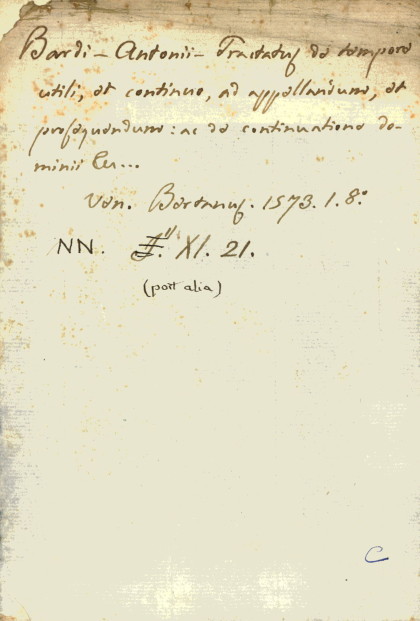 Bardi - Antonii - Tractatus de tempore
utili, et continuo, ad appellandum, et
prosequendum: ac de continuatione do-
minii &c...
Ven. Bertanus. 1573. 1. 8.º
NN. XI. 21.
(post alia)
C